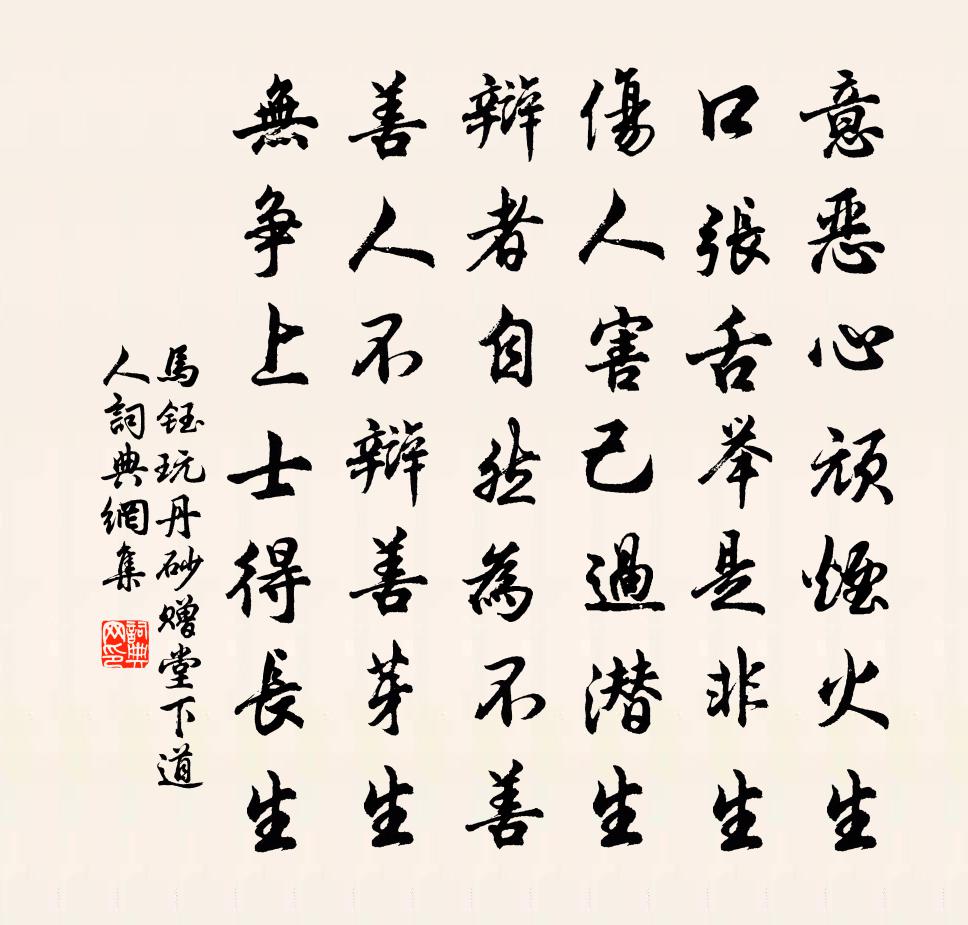 意恶心顽煙火生
口張舌举是非生
傷人害己過潜生
辯者自然為不善
善人不辯善芽生
無争上士得長生
馬鈺玩丹砂赠堂下道
人詞典網集
詞典网印